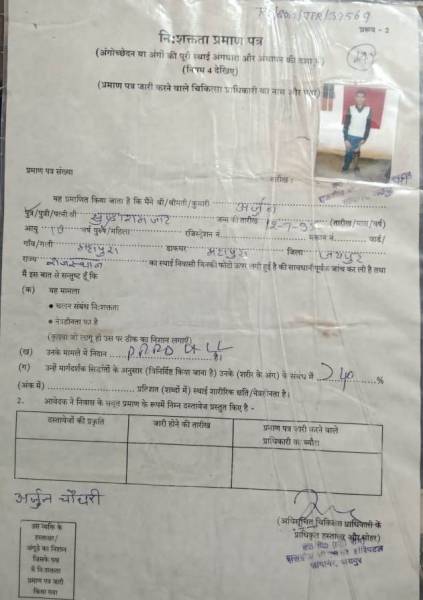 प्ररूप - 2
नि:शक्तता प्रमाण पत्र
(अंगोच्छेदन या अंगों की पूरी स्थाई अंगघात और अंधापन की दशा में)
(नियम 4 देखिए)
(प्रमाण पत्र जारी करने वाले चिकित्सा प्राधिकारी का नाम और पता)
प्रमाण पत्र संख्या
तारीख :
यह प्रमाणित किया जाता है कि मैंने श्री/श्रीमती/कुमारी अर्जुन
पुत्र/पुत्री/पत्नी श्री जाट जन्म की तारीख (तारीख/मास/वर्ष)
आयु वर्ष पुरूष/महिला रजिस्ट्रेशन नं. मकान नं. वार्ड/
गाँव/गली महापुरा डाकघर महापुरा जिला जयपुर
राज्य राजस्थान का स्थाई निवासी जिनकी फोटो ऊपर लगी हुई है की सावधानीपूर्वक जांच कर ली है तथा
मैं इस बात से सन्तुष्ट हूँ कि
(क) यह मामला
• चलन संबंध नि:शक्तता
• नेत्रहीनता का है
(कृपया जो लागू हो उस पर ठीक का निशान लगाएँ)
(ख) उनके मामले में निदान PPRP LL है।
(ग) उन्हें मार्गदर्शक सिद्धांतों के अनुसार (विनिर्दिष्ट किया जाना है) उनके (शरीर के अंग) के संबंध में 40 %
(अंक में) प्रतिशत (शब्दों में) स्थाई शारीरिक क्षति/नेत्रहीनता है।
2. आवेदक ने निवास के सबूत प्रमाण के रूप में निम्न दस्तावेज प्रस्तुत किए है -
दस्तावेजों की प्रकृति जारी होने की तारीख प्रमाण पत्र जारी करने वाले
प्राधिकारी का ब्यौरा
अर्जुन चौधरी
(अधिसूचित चिकित्सा प्राधिकारी के
प्राधिकृत हस्ताक्षर और मोहर)
सांगानेर, जयपुर
उस व्यक्ति के
हस्ताक्षर/
अंगूठे का निशान
जिसके पक्ष
में नि:शक्तता
प्रमाण पत्र जारी
किया गया